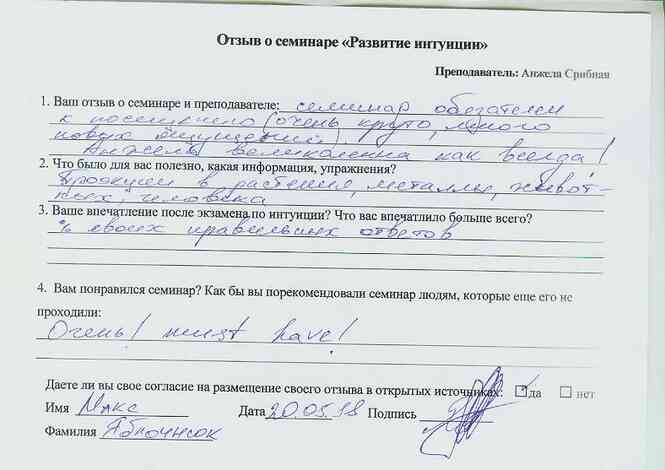 Отзыв о семинаре «Развитие интуиции»
Преподаватель: Анжела Срибная
1. Ваш отзыв о семинаре и преподавателе: семинар обязателен
к посещению (очень круто, много
новых ощущений)
Анжела великолепна как всегда!
2. Что было для вас полезно, какая информация, упражнения?
в растения, металлы, живот-
ных, человека
3. Ваше впечатление после экзамена по интуиции? Что вас впечатлило больше всего?
% своих правильных ответов
4. Вам понравился семинар? Как бы вы порекомендовали семинар людям, которые еще его не
проходили:
Очень! must have!
Даете ли вы свое согласие на размещение своего отзыва в открытых источниках: да нет
Имя Макс Дата 20.05.18 Подпись
Фамилия Яблочнюк